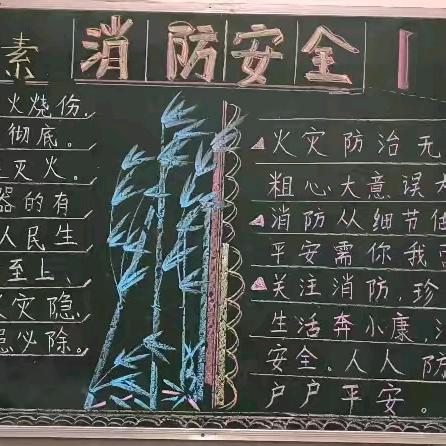 素 消防安全
火烧伤，
彻底。
灭火。
器的有
人民生
至上、
火灾隐
患必除。
火灾防治无
粗心大意误
消防从细节做
平安需你我
关注消防，珍
生活奔小康，
安全。人人防
户户平安。